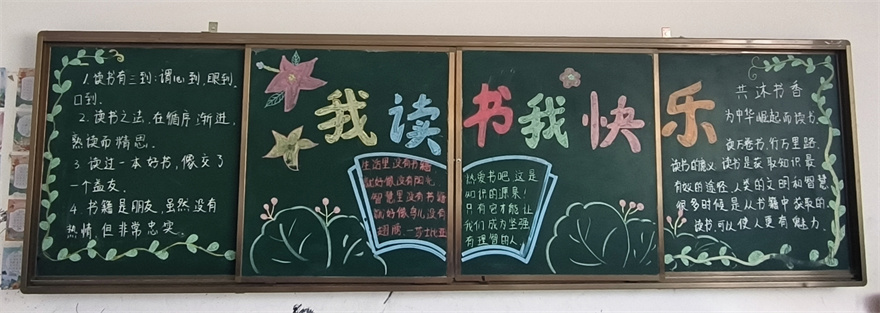 1. 读书有三到：谓心到，眼到，
口到.
2. 读书之法，在循序渐进，
熟读而精思.
3. 读过一本好书，像交了
一个益友.
4. 书籍是朋友，虽然没有
热情，但非常忠实.
我读书我快乐
生活里没有书籍
就好像没有阳光
智慧里没有书籍
就好像鸟儿没有
翅膀 —莎士比亚
热爱书吧 这是
知识的源泉！
只有它才能让
我们成为坚强
有理智的人
共沐书香
为中华崛起而读书
读万卷书，行万里路.
读书的意义 读书是获取知识最
有效的途径，人类的文明和智慧
很多时候是从书籍中获取的
读书，可以使人更有魅力.